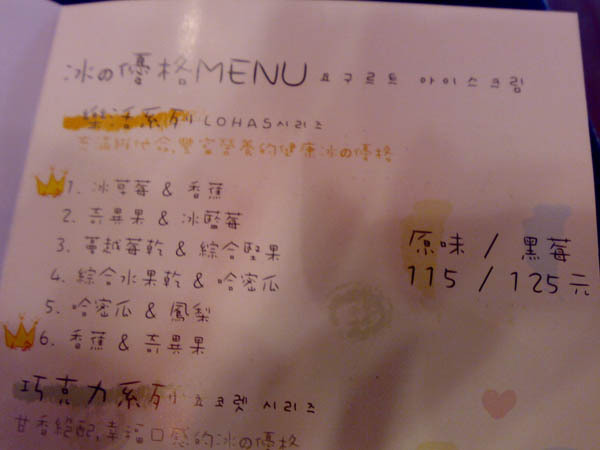 冰の優格MENU 요구르트 아이스크림
樂活系列 LOHAS시리즈
充滿維他命,豐富營養的健康冰の優格
1. 冰草莓 & 香蕉
2. 奇異果 & 冰藍莓
3. 蔓越莓乾 & 綜合堅果
4. 綜合水果乾 & 哈密瓜
5. 哈密瓜 & 鳳梨
6. 香蕉 & 奇異果
原味 / 黑莓
115 / 125元
巧克力系列 쵸코렛 시리즈
甘香絕配,幸福口感的冰の優格